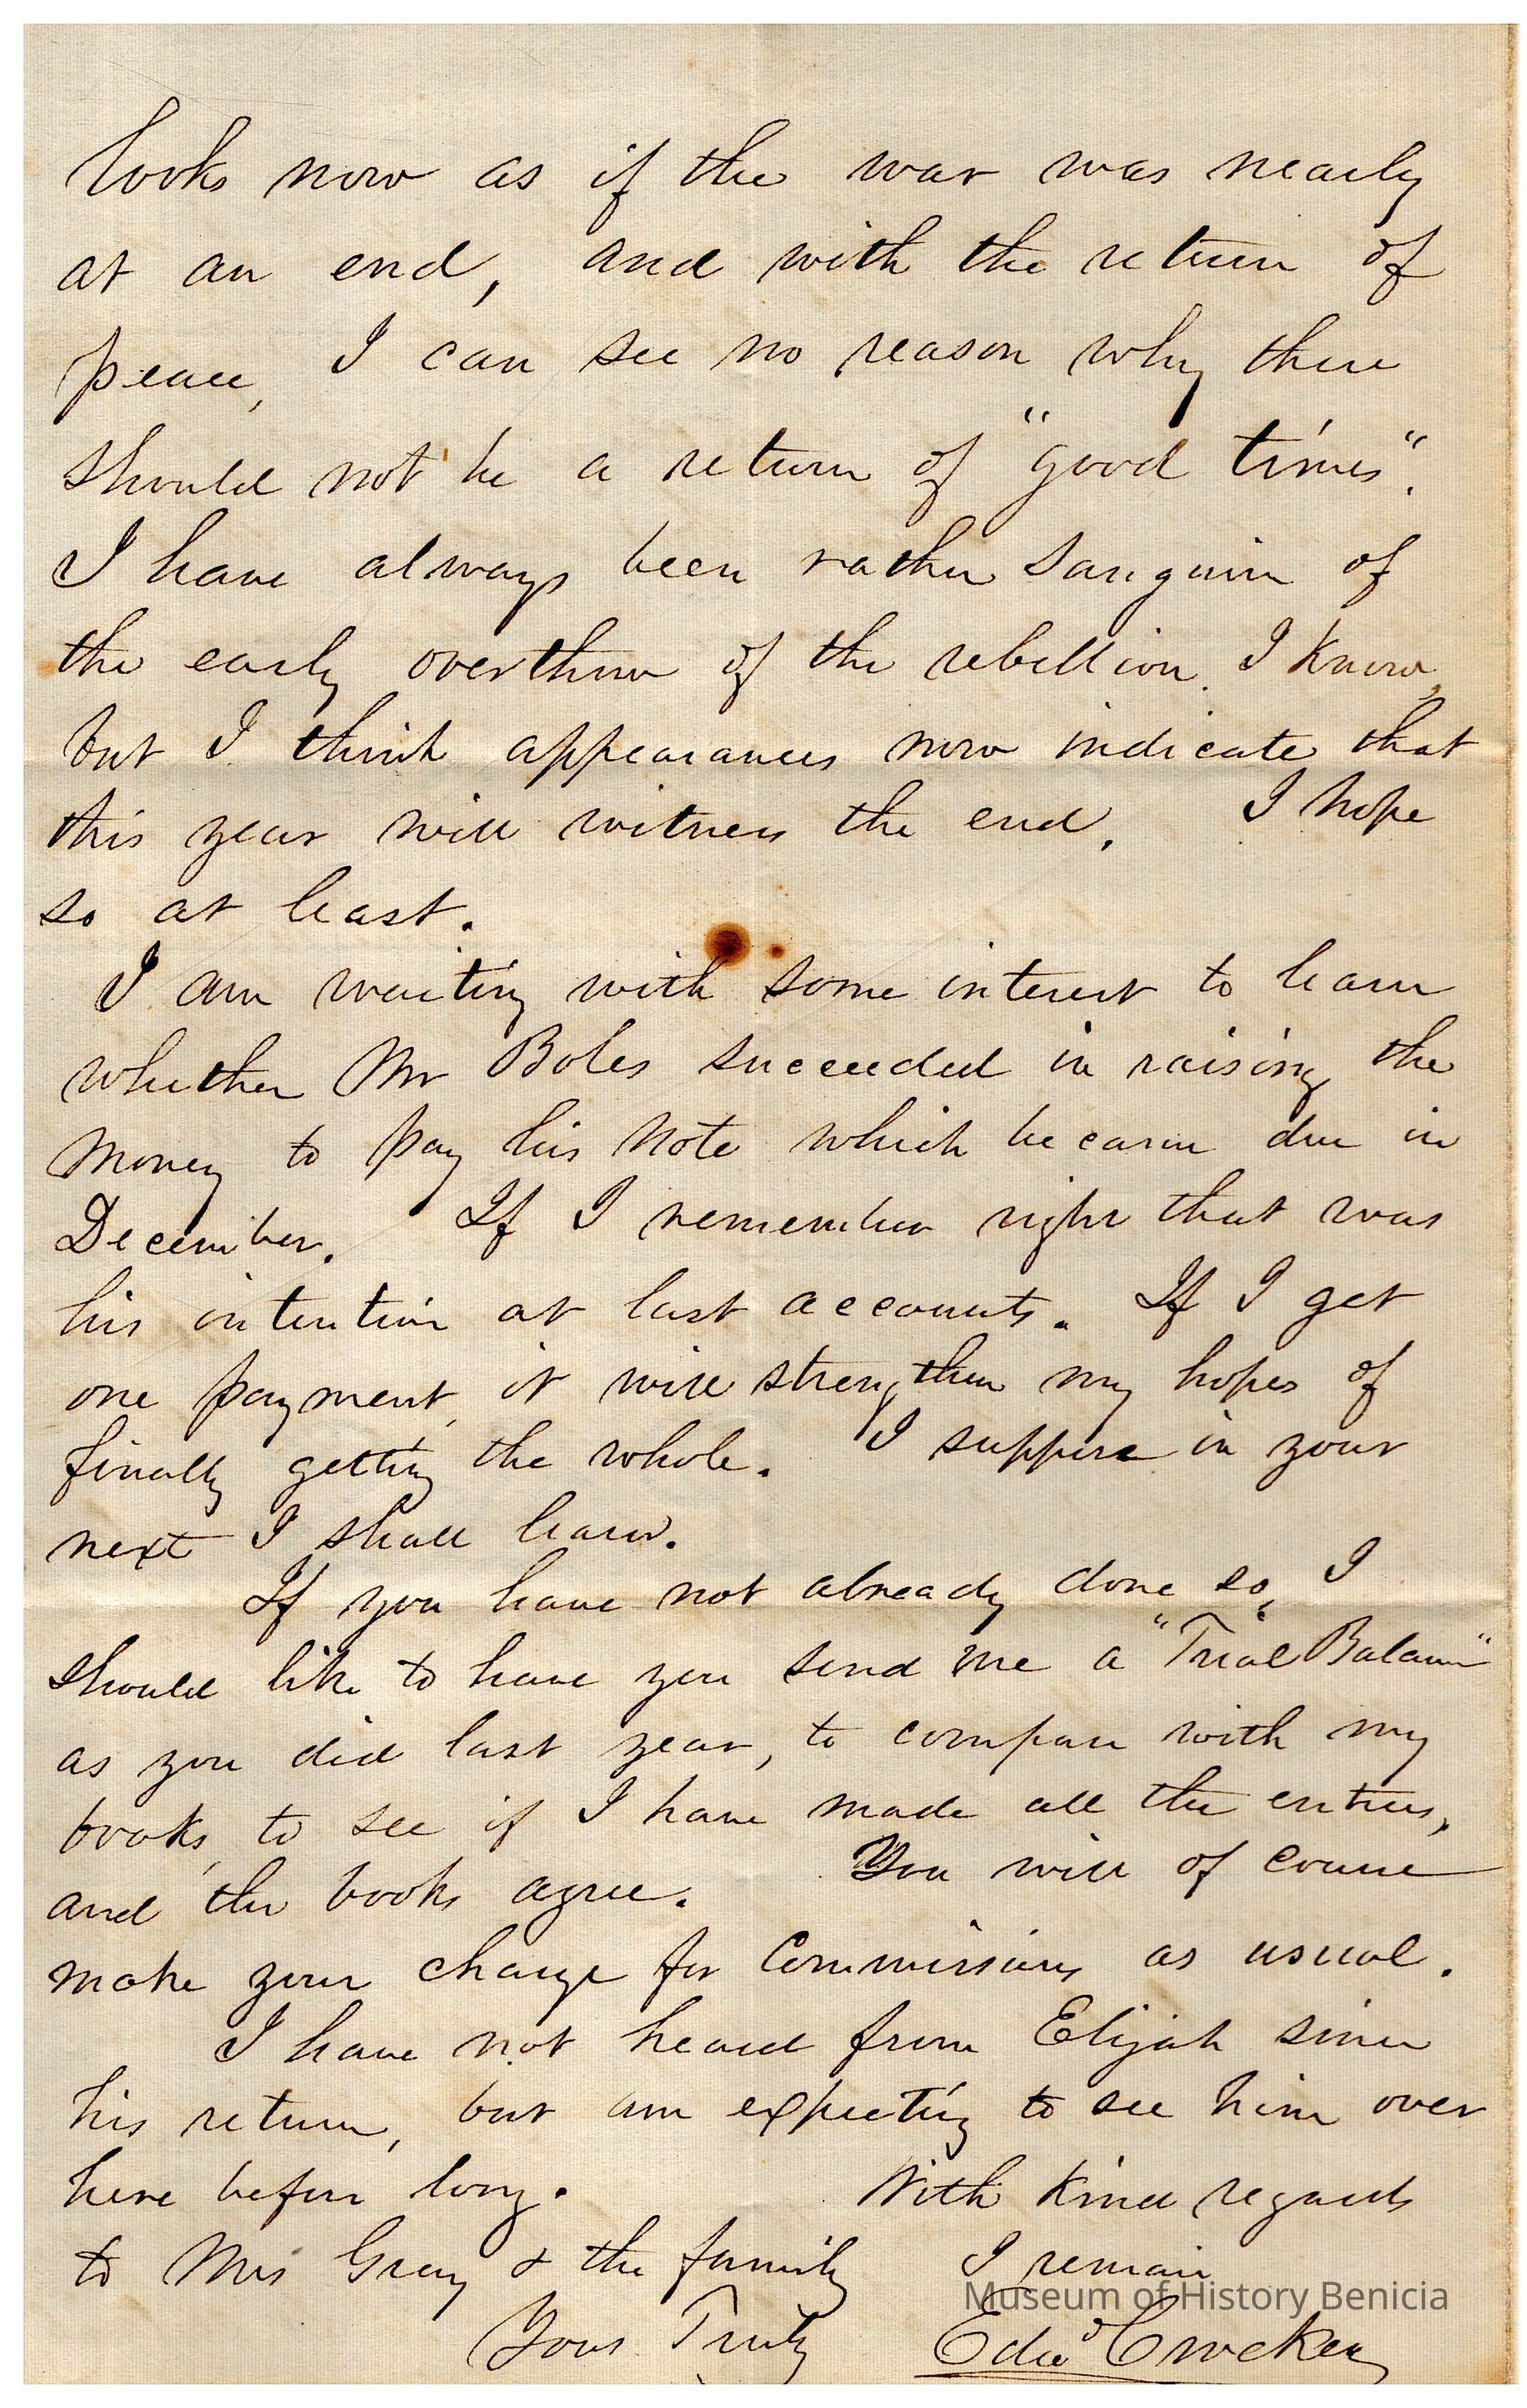 looks now as if the war was nearly
at an end, and with the return of
peace, I can see no reason why there
should not be a return of "good times".
I have always been rather sanguine of
the early overthrow of the rebellion, I know,
but I think appearances now indicate that
this year will witness the end. I hope
so at least.
I am waiting with some interest to learn
whether Mr Boles succeeded in raising the
money to pay his note which became due in
December. If I remember right that was
his intention at last accounts. If I get
one payment, it will strengthen my hopes of
finally getting the whole. I suppose in your
next I shall learn.
If you have not already done so, I
should like to have you send me a "Trial Balance"
as you did last year, to compare with my
books, to see if I have made all the entries,
and the books agree. You will of course
make your charge for Commissions as usual.
I have not heard from Elijah since
his return, but am expecting to see him over
here before long. With kind regards
to Mrs Gray & the family I remain
Yours Truly Edwd Crocker
Museum of History Benicia